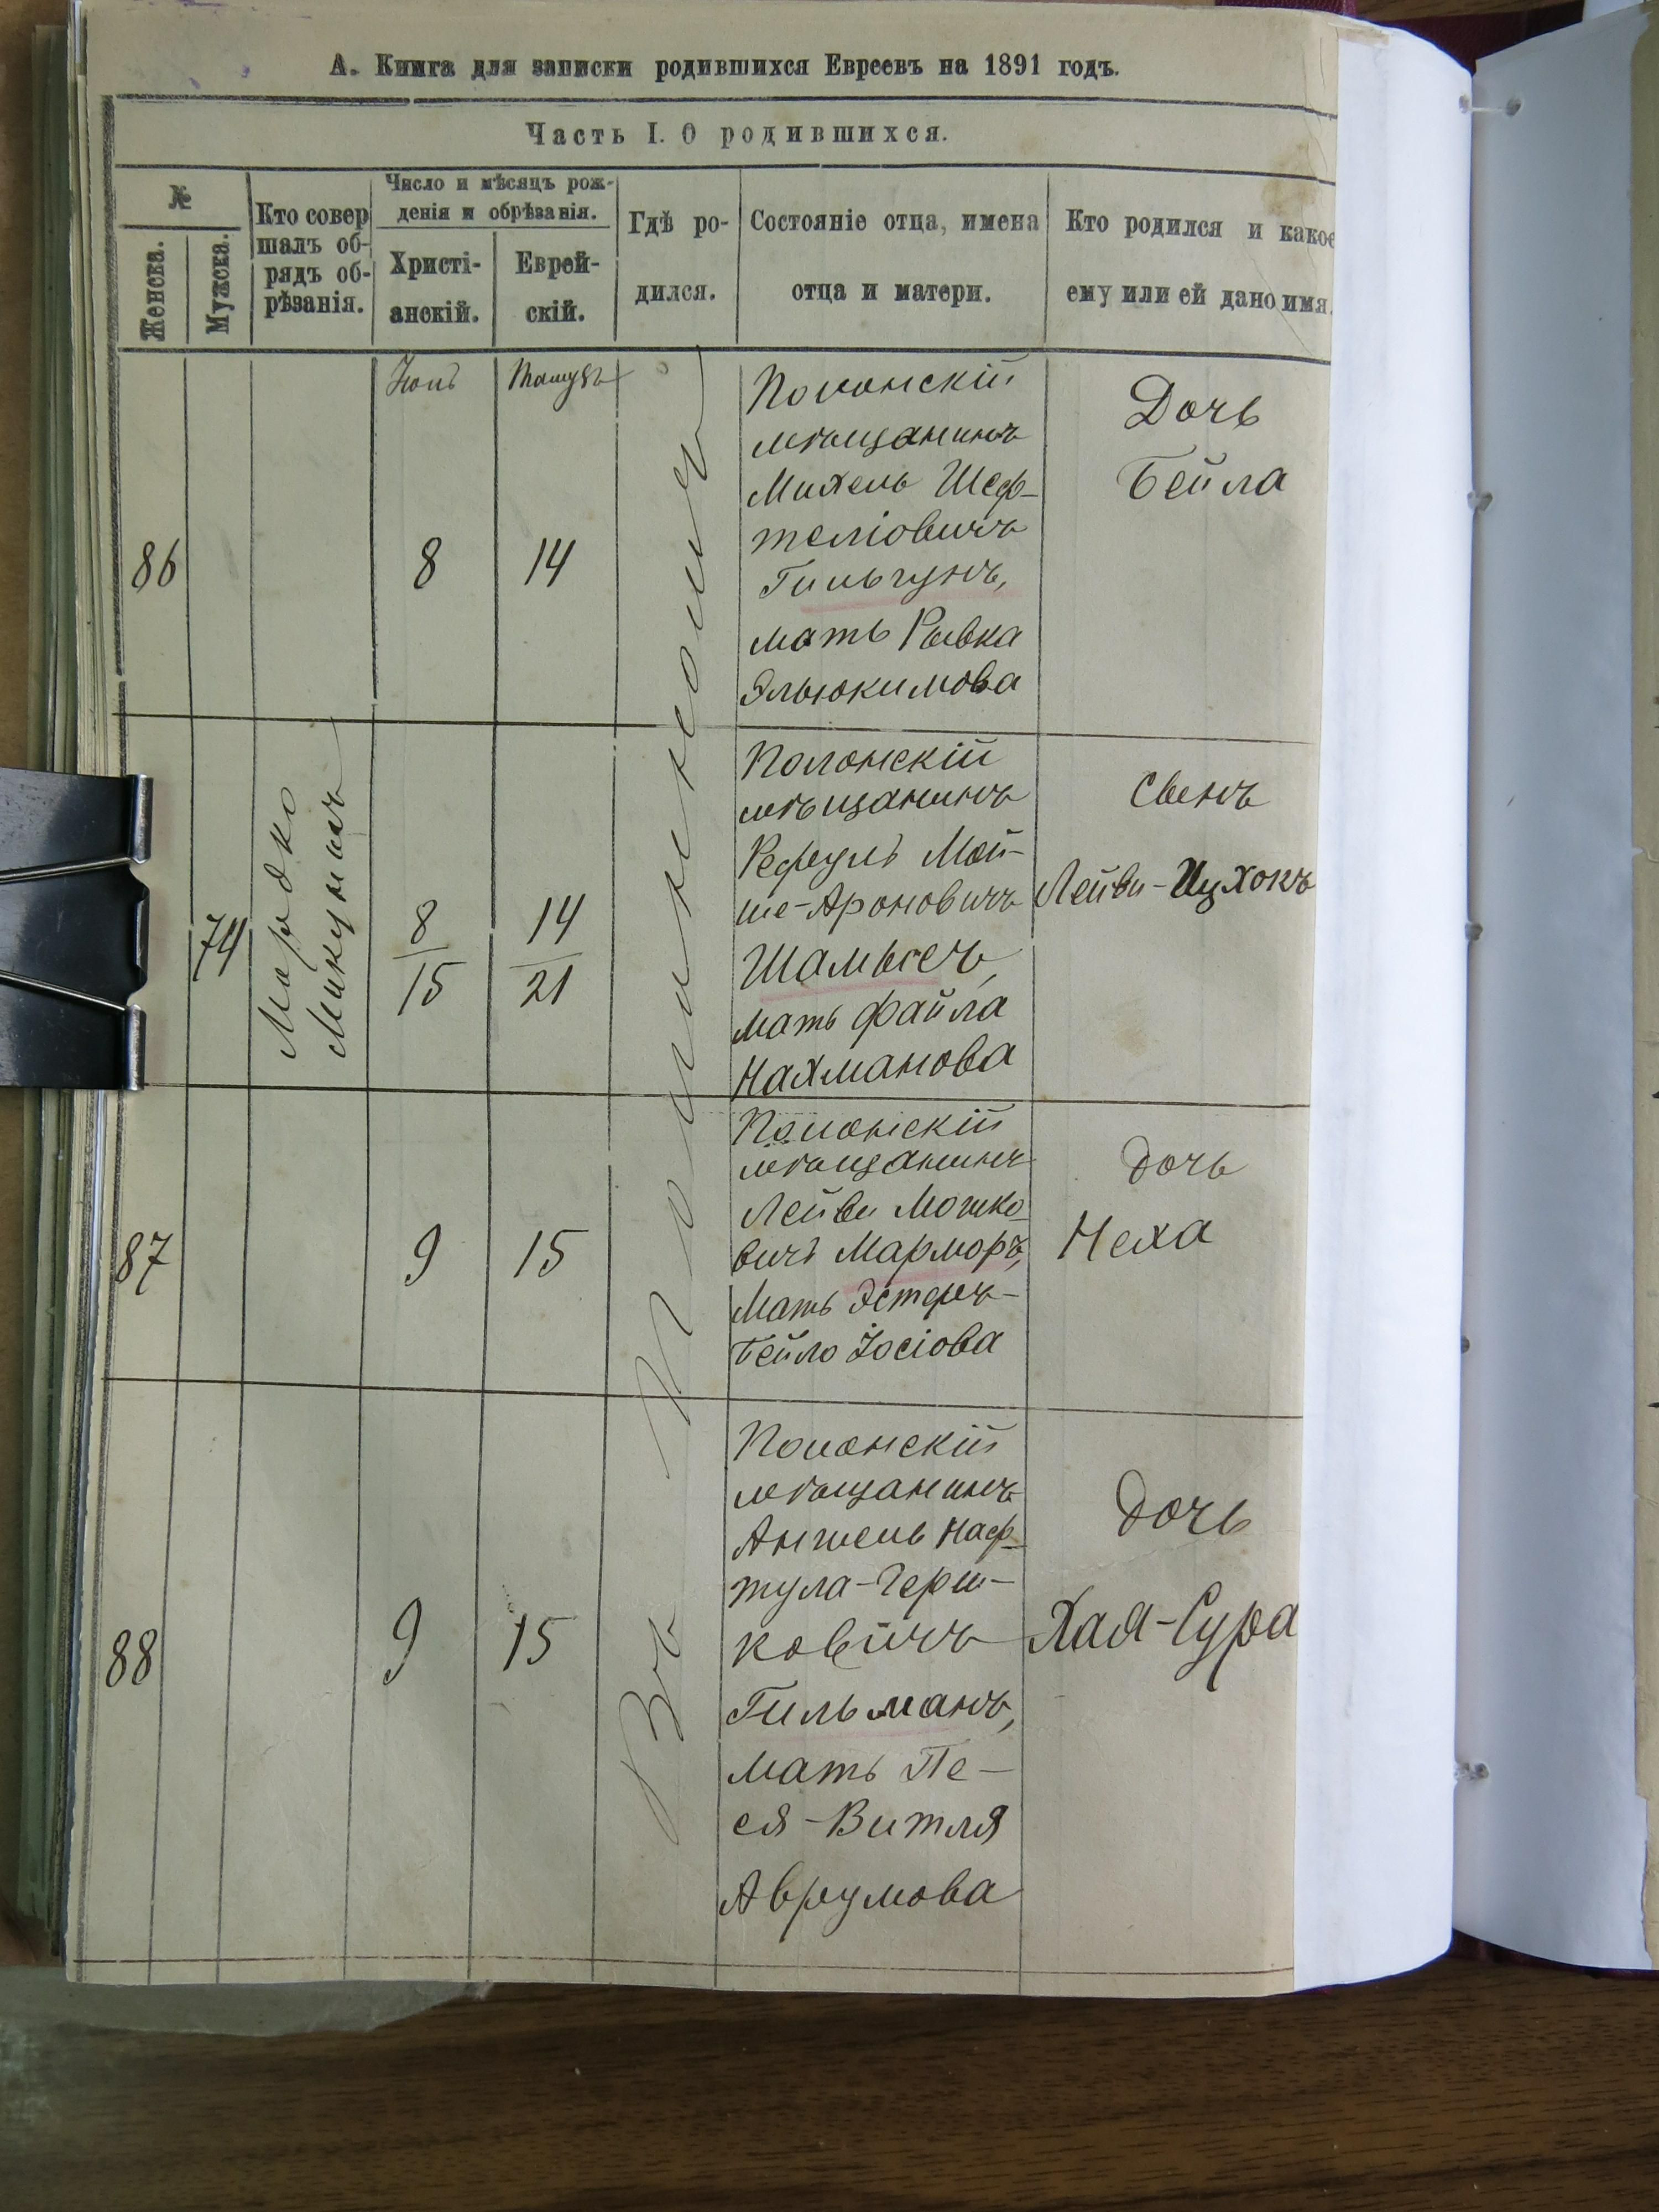 А. Книга для записки родившихся Евреевъ на 1891 годъ.
Часть I. О родившихся.
№
Женска.
Мужска.
Кто совер
шалъ об-
рядъ об-
рѣзанія.
Число и мѣсяцъ рож-
денія и обрѣзанія.
Христі-
анскій.
Еврей-
скій.
Гдѣ ро-
дился.
Состояніе отца, имена
отца и матери.
Кто родился и какое
ему или ей дано имя.
86
8
14
Полонскій
мѣщанинъ
Михель Шеф-
теліовичъ
Гильгунъ,
мать Рывка
Эльюкимова
Дочь
Бейла
74
Мордко
8
15
14
21
Полонскій
мѣщанинъ
Рефулъ Мой-
ше-Ароновичъ
мать Файла
Нахманова
Сынъ
Лейви-Ицхокъ
87
9
15
Полонскій
мѣщанинъ
Лейви Мошко-
вичъ Марморъ,
Мать Эстеръ-
Бейло Іосіова
Дочь
Неха
88
9
15
Полонскій
мѣщанинъ
Аншель Наф-
тула-Герш-
ковичъ
Гильманъ,
мать Пе-
ся-Витля
Аврумова
Дочь
Хая-Сура
Въ